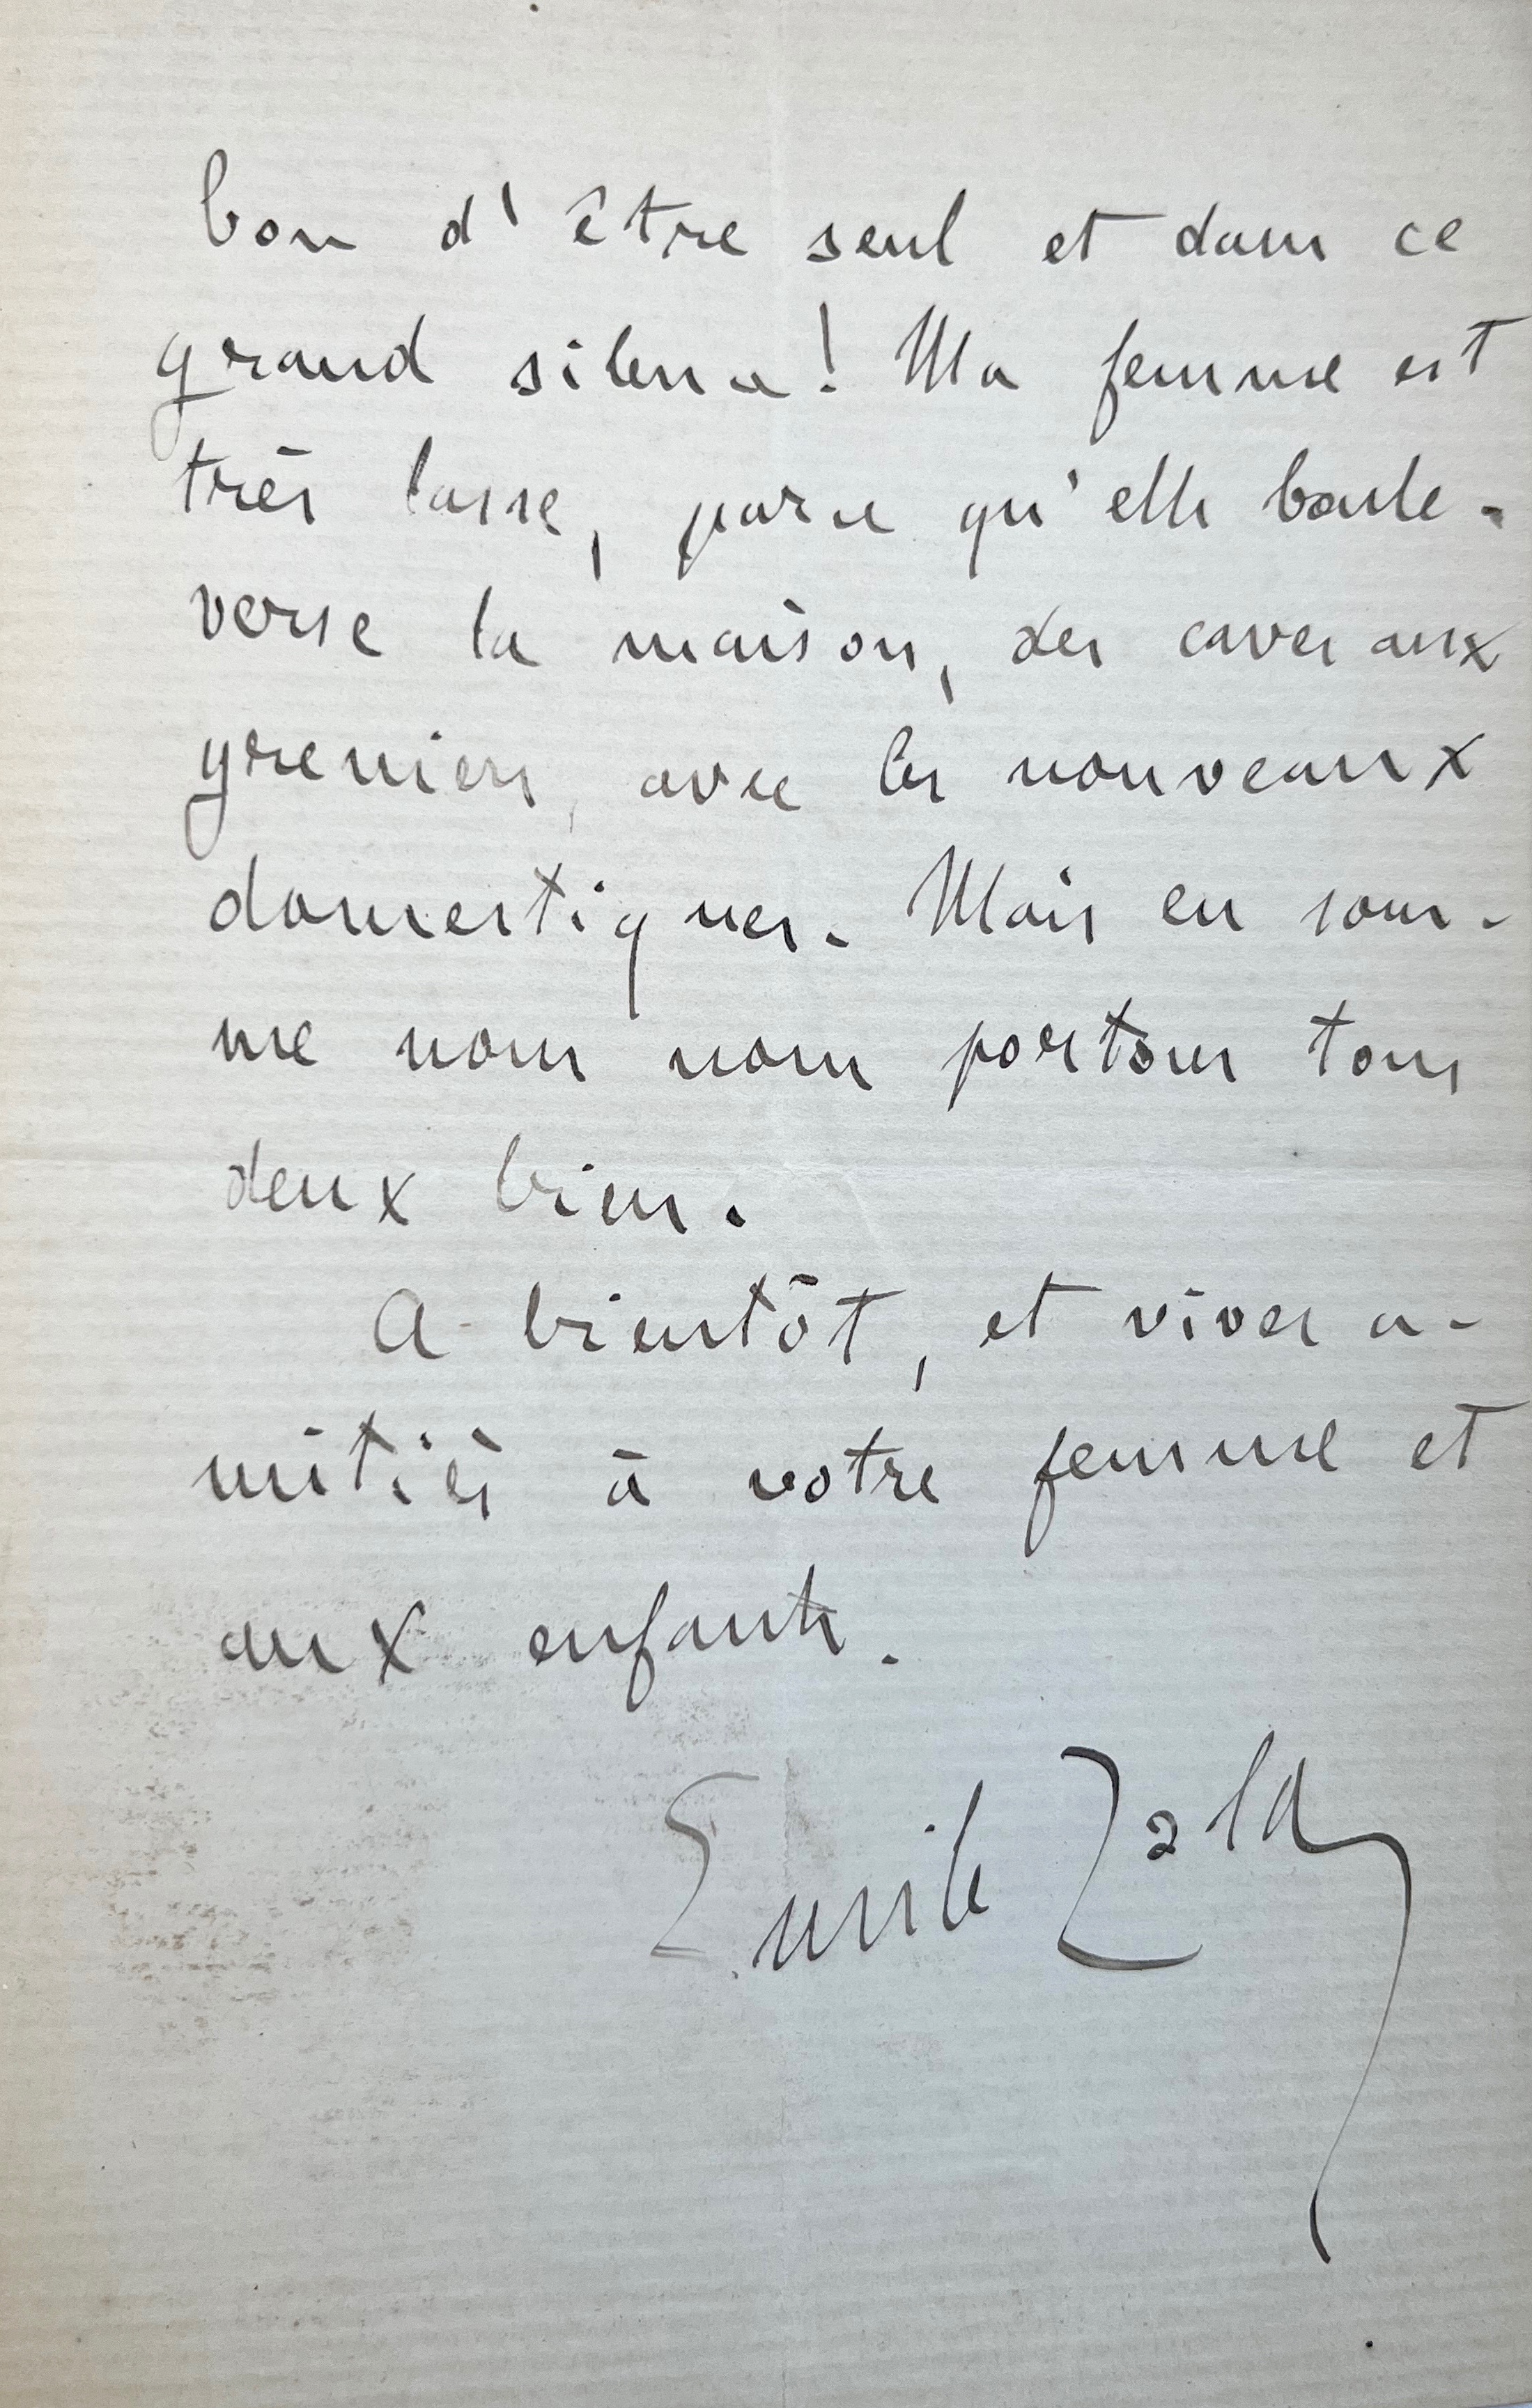 bon d'être seul et dans ce
grand silence! Ma femme est
très lasse, parce qu'elle boule-
verse la maison, des caves aux
greniers, avec les nouveaux
domestiques. Mais en som-
me nous nous portons tous
deux bien.
A bientôt, et vives a-
mitiés à votre femme et
aux enfants.
Emile Zola